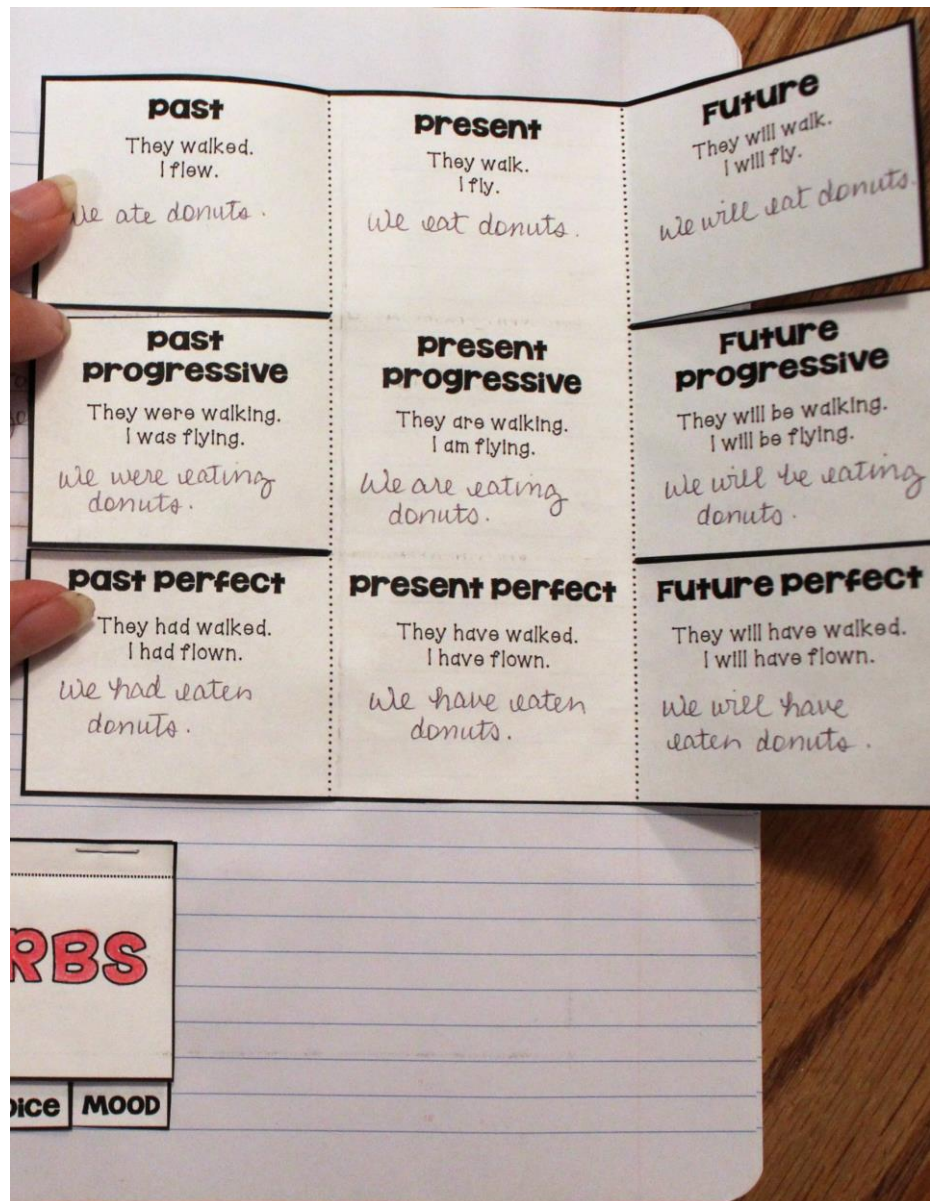 Past
They walked.
I flew.
We ate donuts.
Present
They walk.
I fly.
We eat donuts.
Future
They will walk.
I will fly.
We will eat donuts.
Past
Progressive
They were walking.
I was flying.
We were eating
donuts.
Present
Progressive
They are walking.
I am flying.
We are eating
donuts.
Future
Progressive
They will be walking.
I will be flying.
We will be eating
donuts.
Past Perfect
They had walked.
I had flown.
We had eaten
donuts.
Present Perfect
They have walked.
I have flown.
We have eaten
donuts.
Future Perfect
They will have walked.
I will have flown.
We will have
eaten donuts.
RBS
oice
MOOD